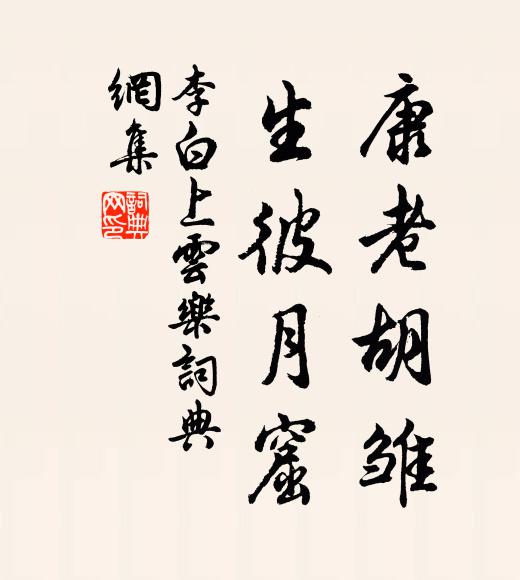 康老胡雛
生彼月窟
李白上雲樂詞典
網集
詞典
网印